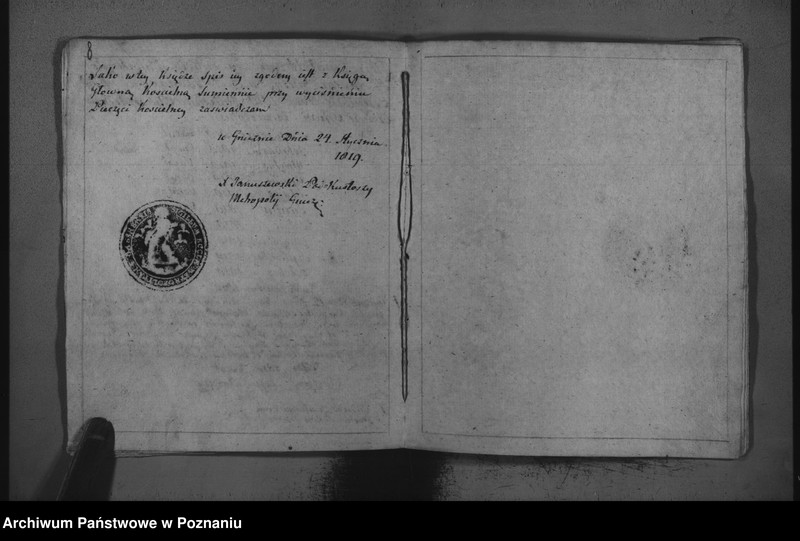 8
Jako w tey Księdze spis ten zgodny iest z Księgą
Główną Kościelną Sumiennie przy wyciśnieniu
Pieczęci Kościelney zaświadczam
w Gnieznie Dnia 24. Stycznia
1819.
X Januszewski Po: Kustoszy
Metropoly Gnież:
Archiwum Państwowe w Poznaniu